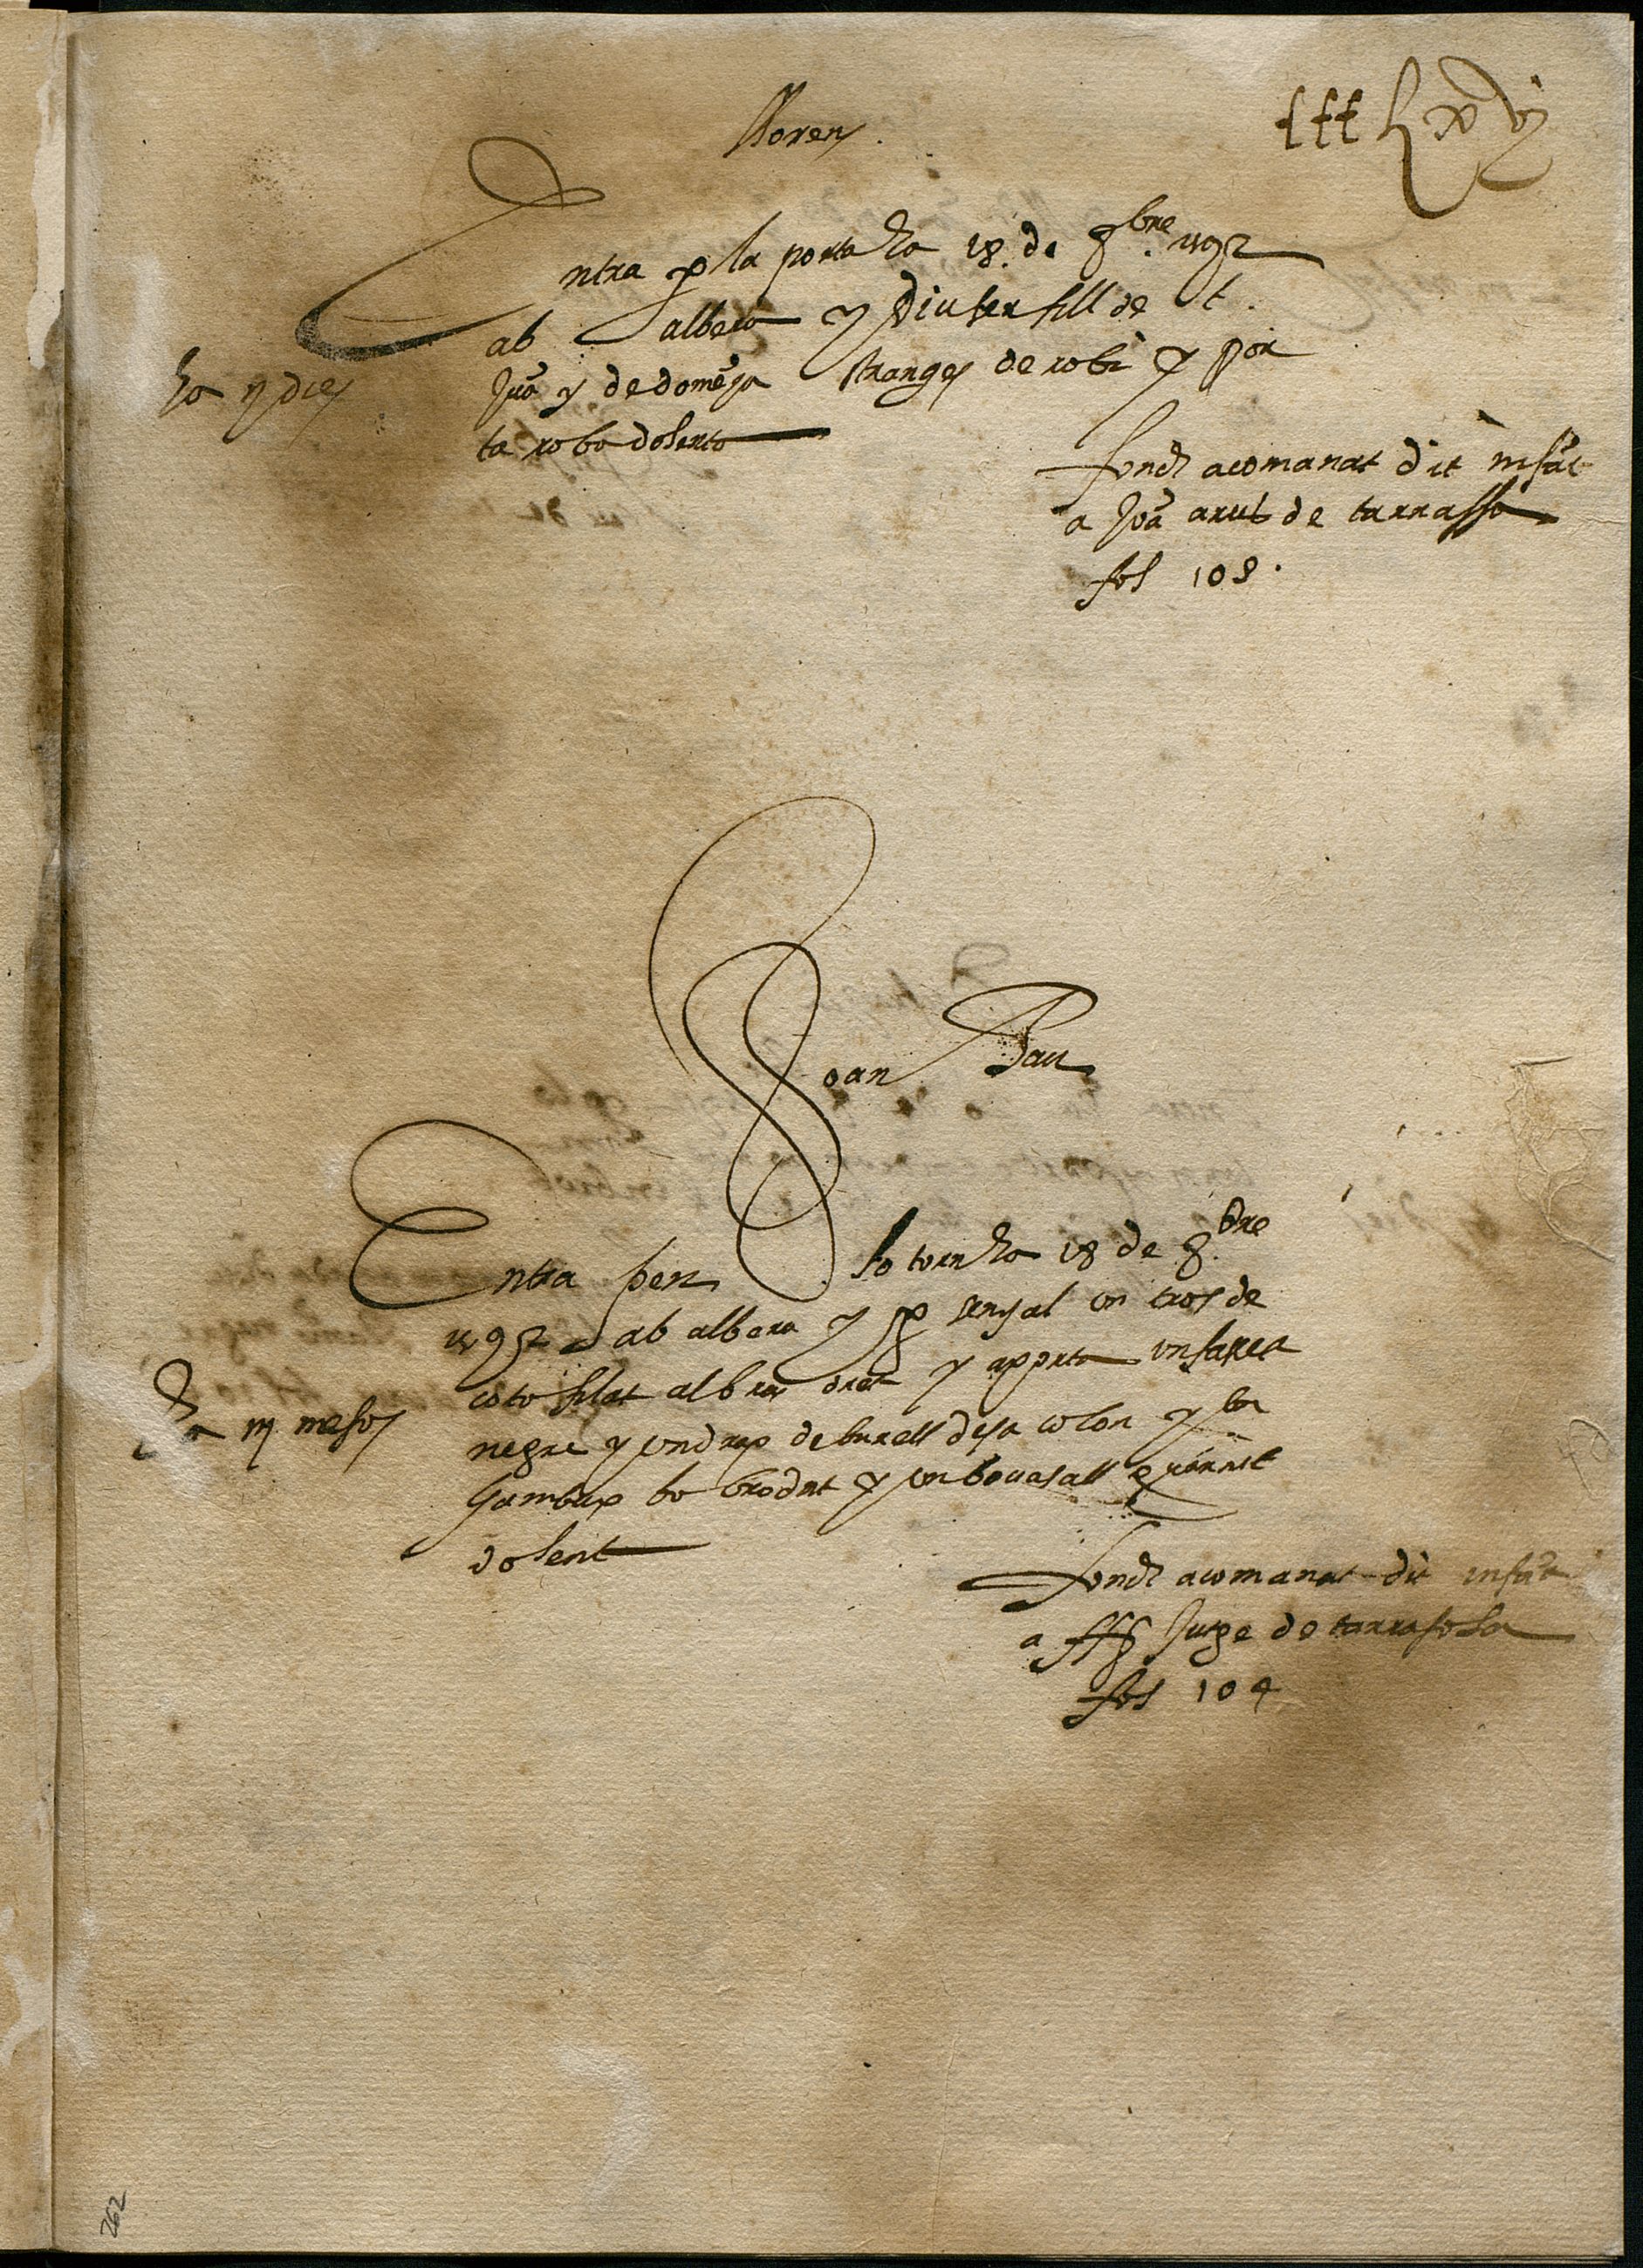 Llorens
fff Lxvj
Entra p la porta ha 18. de 8bre. 1592
ab albera y diu ser fill de t.
Juā y de domēja stranges de robi y por
ta roba dolenta
ha y dies
fonch acomanat dit infāt
a Joā de tarrassa
fol 108.
Joan Pau
Entra per lo torn ha 18 de 8.bre
1592 ab albera y p senyal un tros de
coto filat al bras dret y apporta
negre y un drap de burell de sa color y
gambux bo brodat y un bouasall
dolent
ha mesos
fonch acomanat dit infāt
a Jutge de tarrasola
fol 104
262